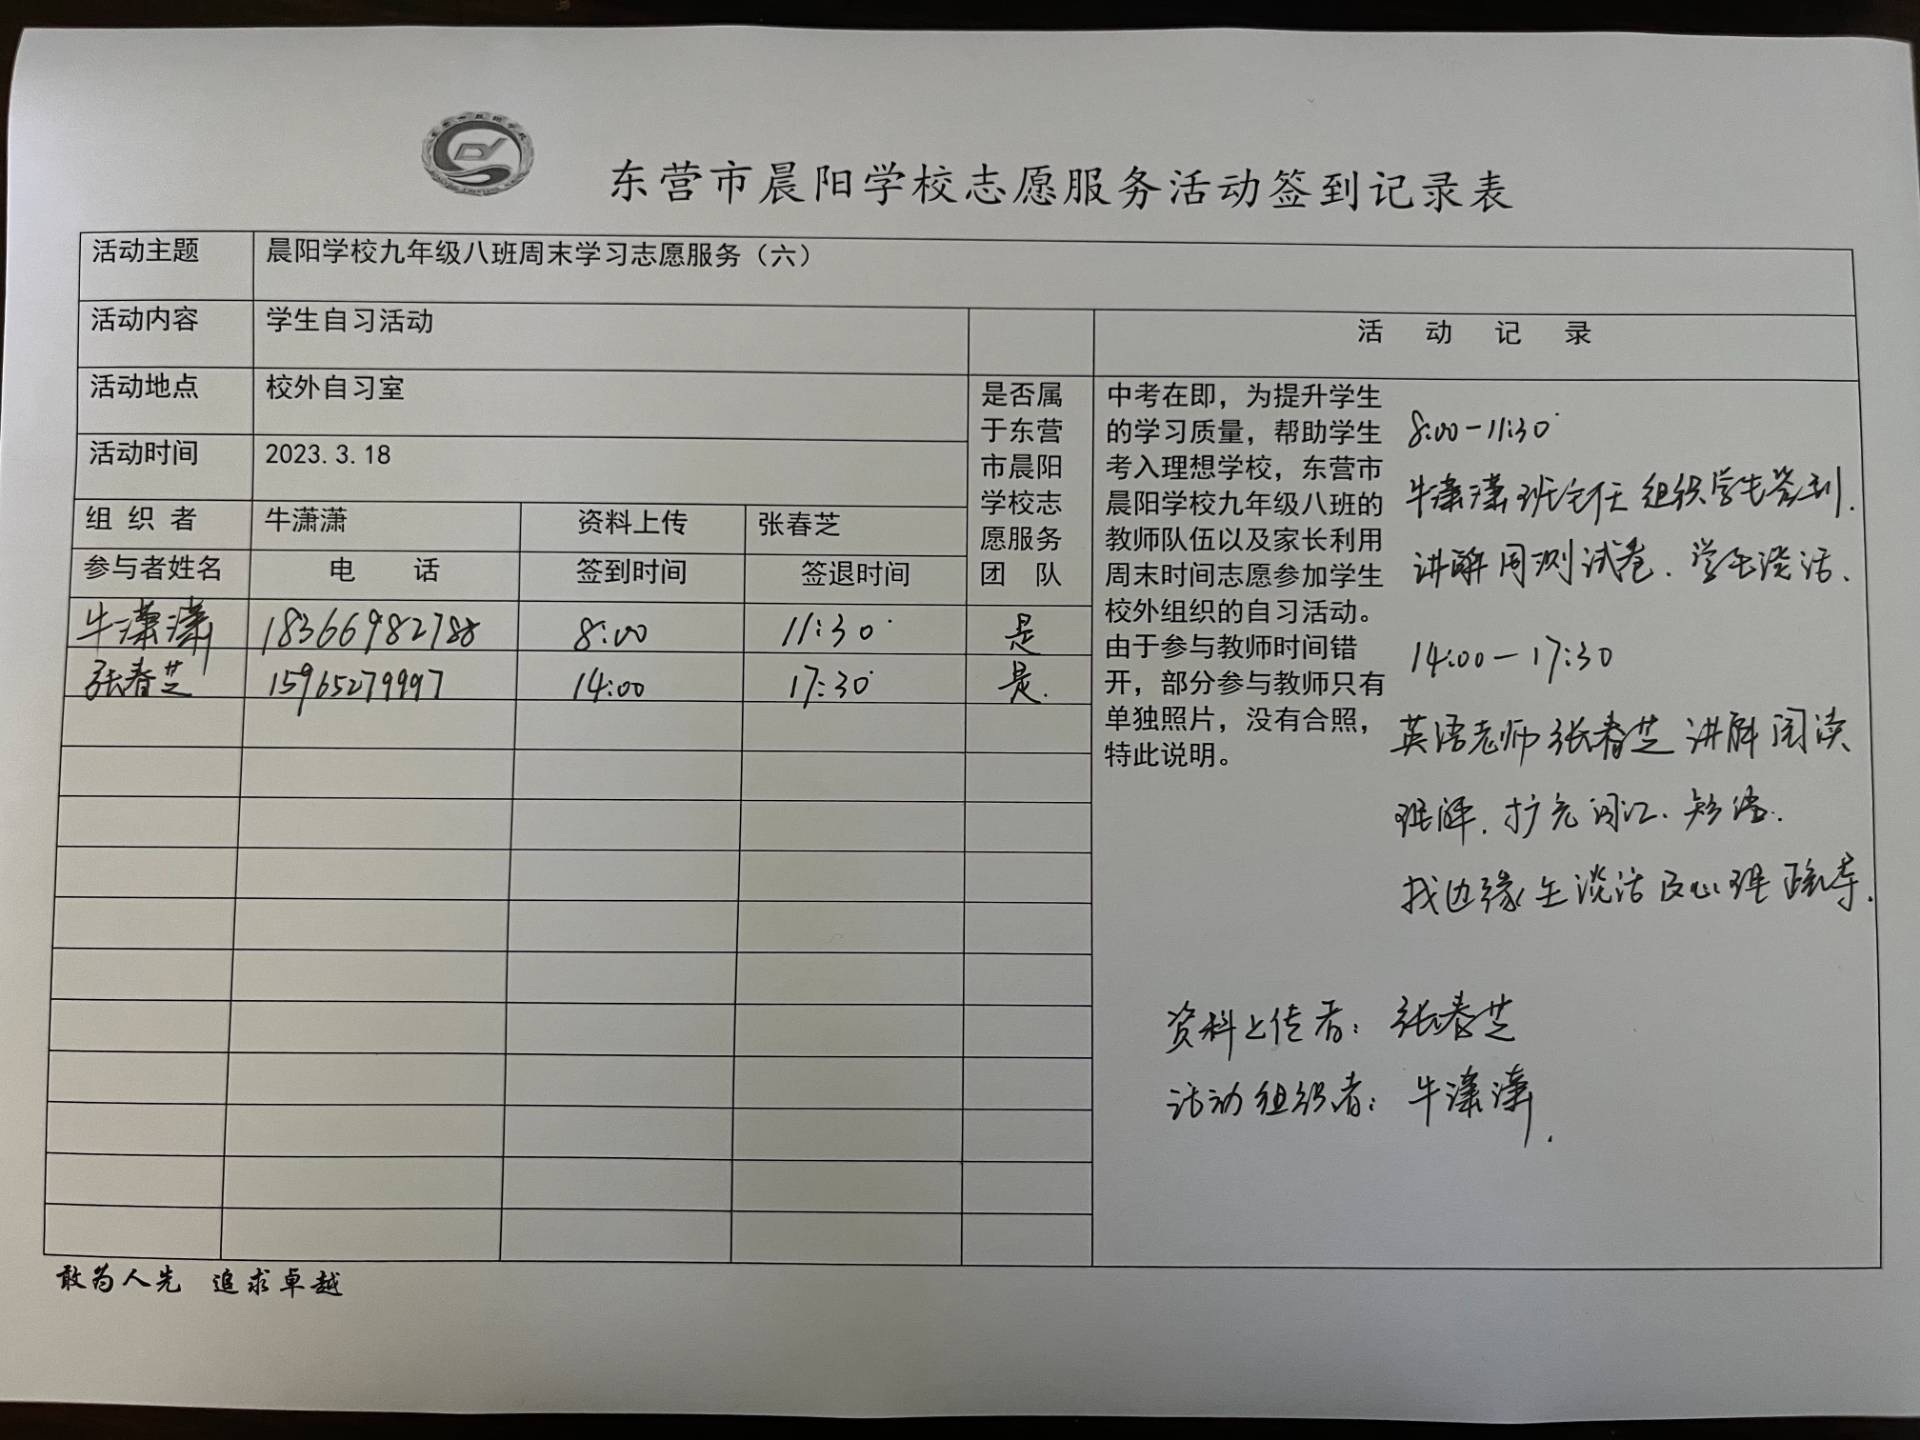 东营市晨阳学校志愿服务活动签到记录表
活动主题 晨阳学校九年级八班周末学习志愿服务（六）
活动内容 学生自习活动
活动地点 校外自习室
活动时间 2023.3.18
组 织 者 牛潇潇 资料上传 张春芝
参与者姓名 电 话 签到时间 签退时间
是否属
于东营
市晨阳
学校志
愿服务
团 队
牛潇潇 18366982788 8:00 11:30 是
张春芝 15965279997 14:00 17:30 是.
活 动 记 录
中考在即，为提升学生
的学习质量，帮助学生
考入理想学校，东营市
晨阳学校九年级八班的
教师队伍以及家长利用
周末时间志愿参加学生
校外组织的自习活动。
由于参与教师时间错
开，部分参与教师只有
单独照片，没有合照，
特此说明。
8:00-11:30
牛潇潇班主任组织学生签到.
讲解周测试卷.学生谈话.
14:00-17:30
英语老师张春芝讲解阅读
理解.扩充词汇.短语.
找边缘生谈话及心理疏导.
资料上传者：张春芝
活动组织者：牛潇潇.
敢为人先 追求卓越